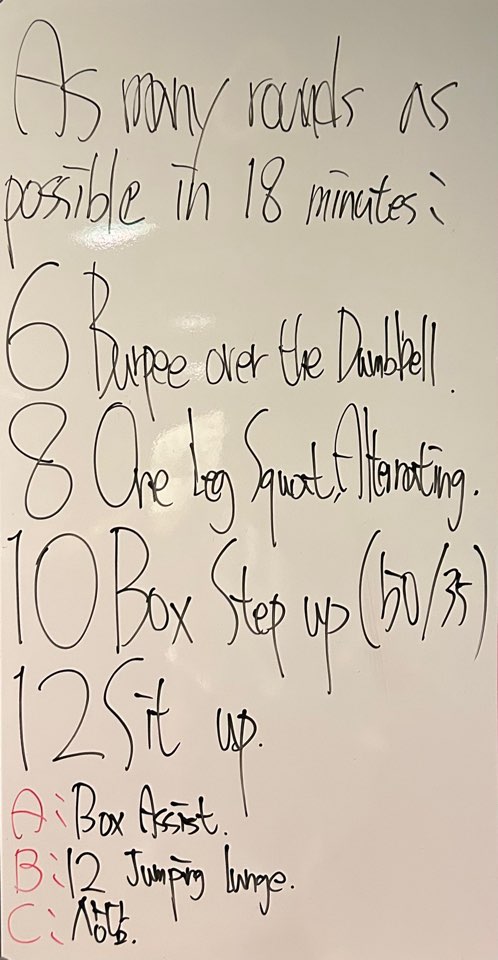 As many rounds as
possible in 18 minutes:
6 Burpee over the Dumbbell.
8 One Leg Squat, Alternating.
10 Box Step up (50/35)
12 Sit up.
A: Box Assist.
B: 12 Jumping lunge.
C: 상담.